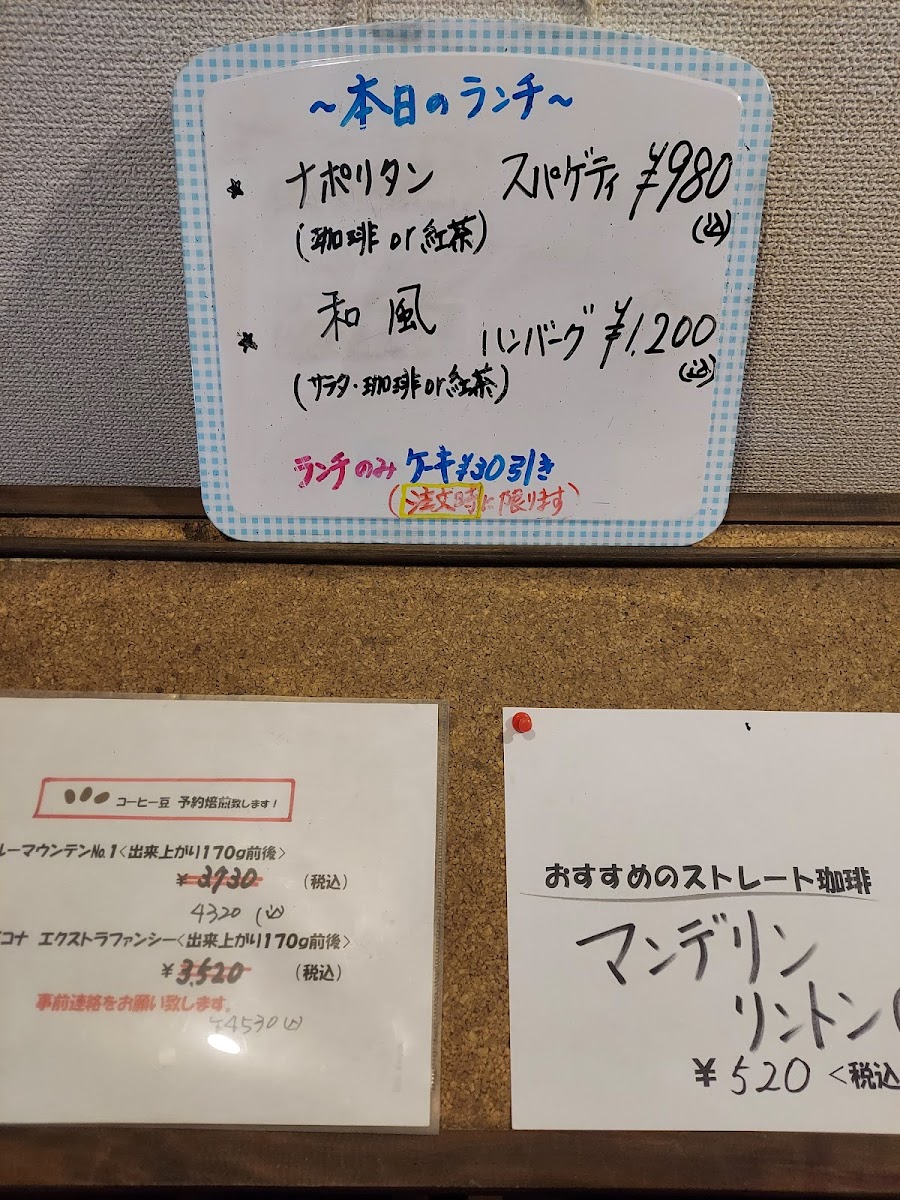 ～本日のランチ～
★ ナポリタン スパゲティ ¥980
(珈琲or紅茶) (込)
★ 和風 ハンバーグ ¥1,200
(サラダ・珈琲or紅茶) (込)
ランチのみ ケーキ¥30引き
(注文時に限ります)
コーヒー豆 予約焙煎致します!
ルーマウンテンNo.1<出来上がり170g前後>
¥3,730 (税込)
4320 (込)
コナ エクストラファンシー<出来上がり170g前後>
¥3,520 (税込)
事前連絡をお願い致します。
¥4530込
おすすめのストレート珈琲
マンデリン
リントン(
¥520<税込